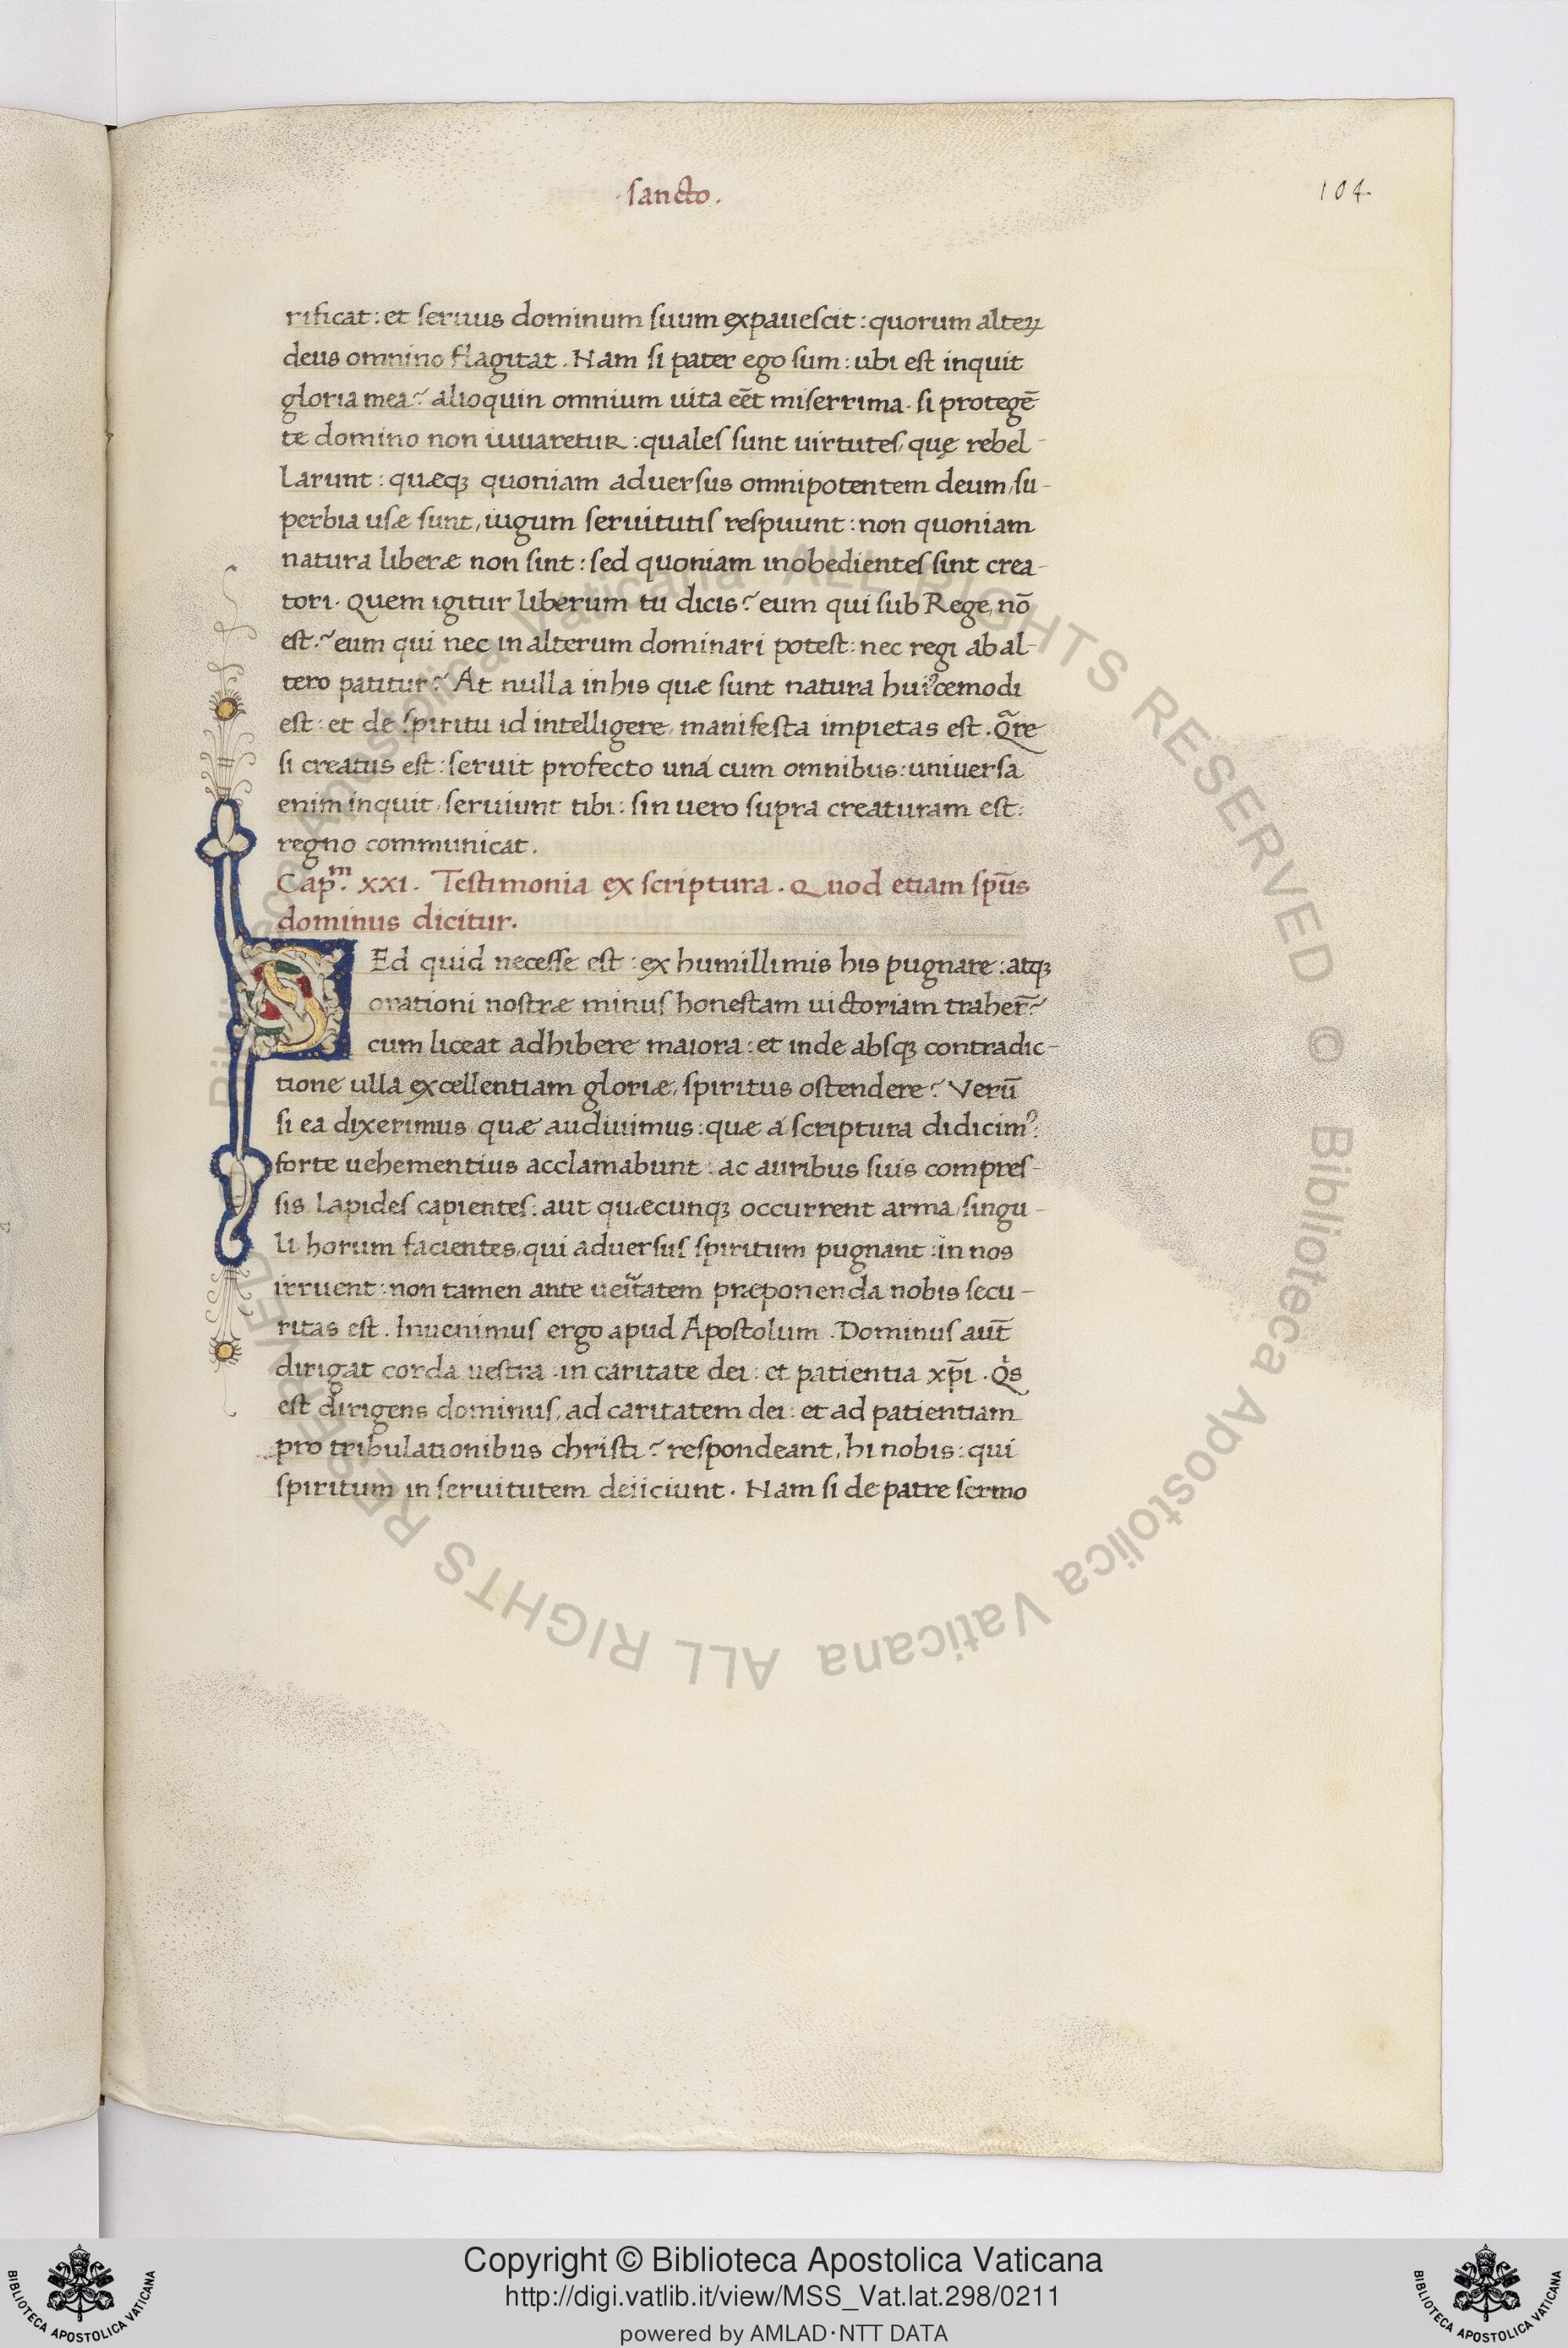 ·sancto.
104.
rificat: et seruus dominum suum expauescit: quorum alteꝝ
deus omnino flagitat. Nam si pater ego sum: ubi est inquit
gloria mea? alioquin omnium uita eēt miserrima. si protegē
te domino non iuuaretur: quales sunt uirtutes, quę rebel-
larunt: quæqꝫ quoniam aduersus omnipotentem deum, su-
perbia usæ sunt, iugum seruitutis respuunt: non quoniam
natura liberæ non sint: sed quoniam inobedientes sint crea-
tori. Quem igitur liberum tu dicis? eum qui sub Rege, nō
est? eum qui nec in alterum dominari potest: nec regi ab al-
tero patitur? At nulla in his quæ sunt natura huiꝰcemodi
est: et de spiritu id intelligere, manifesta impietas est. Q̃re
si creatus est: seruit profecto uná cum omnibus: uniuersa
enim inquit, seruiunt tibi: sin uero supra creaturam est:
regno communicat.
Cap.ᵐ xxi. Testimonia ex scriptura. Quod etiam sp̄us
dominus dicitur.
SEd quid necesse est: ex humillimis his pugnare: atqꝫ
orationi nostræ minus honestam uictoriam traher̄?
cum liceat adhibere maiora: et inde absqꝫ contradic-
tione ulla excellentiam gloriæ, spiritus ostendere? Verū
si ea dixerimus quæ audiuimus: quæ á scriptura didicimꝰ:
forte uehementius acclamabunt: ac auribus suis compres-
sis lapides capientes: aut quæcunqꝫ occurrent arma, singu-
li horum facientes, qui aduersus spiritum pugnant: in nos
irruent: non tamen ante ueritatem præponenda nobis secu-
ritas est. Inuenimus ergo apud Apostolum. Dominus aut̄
dirigat corda uestra in caritate dei: et patientia xp̄i. Qͥs
est dirigens dominus, ad caritatem dei: et ad patientiam
pro tribulationibus christi? respondeant, hi nobis: qui
spiritum in seruitutem deiiciunt. Nam si de patre sermo
Biblioteca Apostolica Vaticana ALL RIGHTS RESERVED © Biblioteca Apostolica Vaticana ALL RIGHTS RESERVED
Copyright © Biblioteca Apostolica Vaticana
http://digi.vatlib.it/view/MSS_Vat.lat.298/0211
powered by AMLAD·NTT DATA
BIBLIOTECA APOSTOLICA VATICANA
BIBLIOTECA APOSTOLICA VATICANA